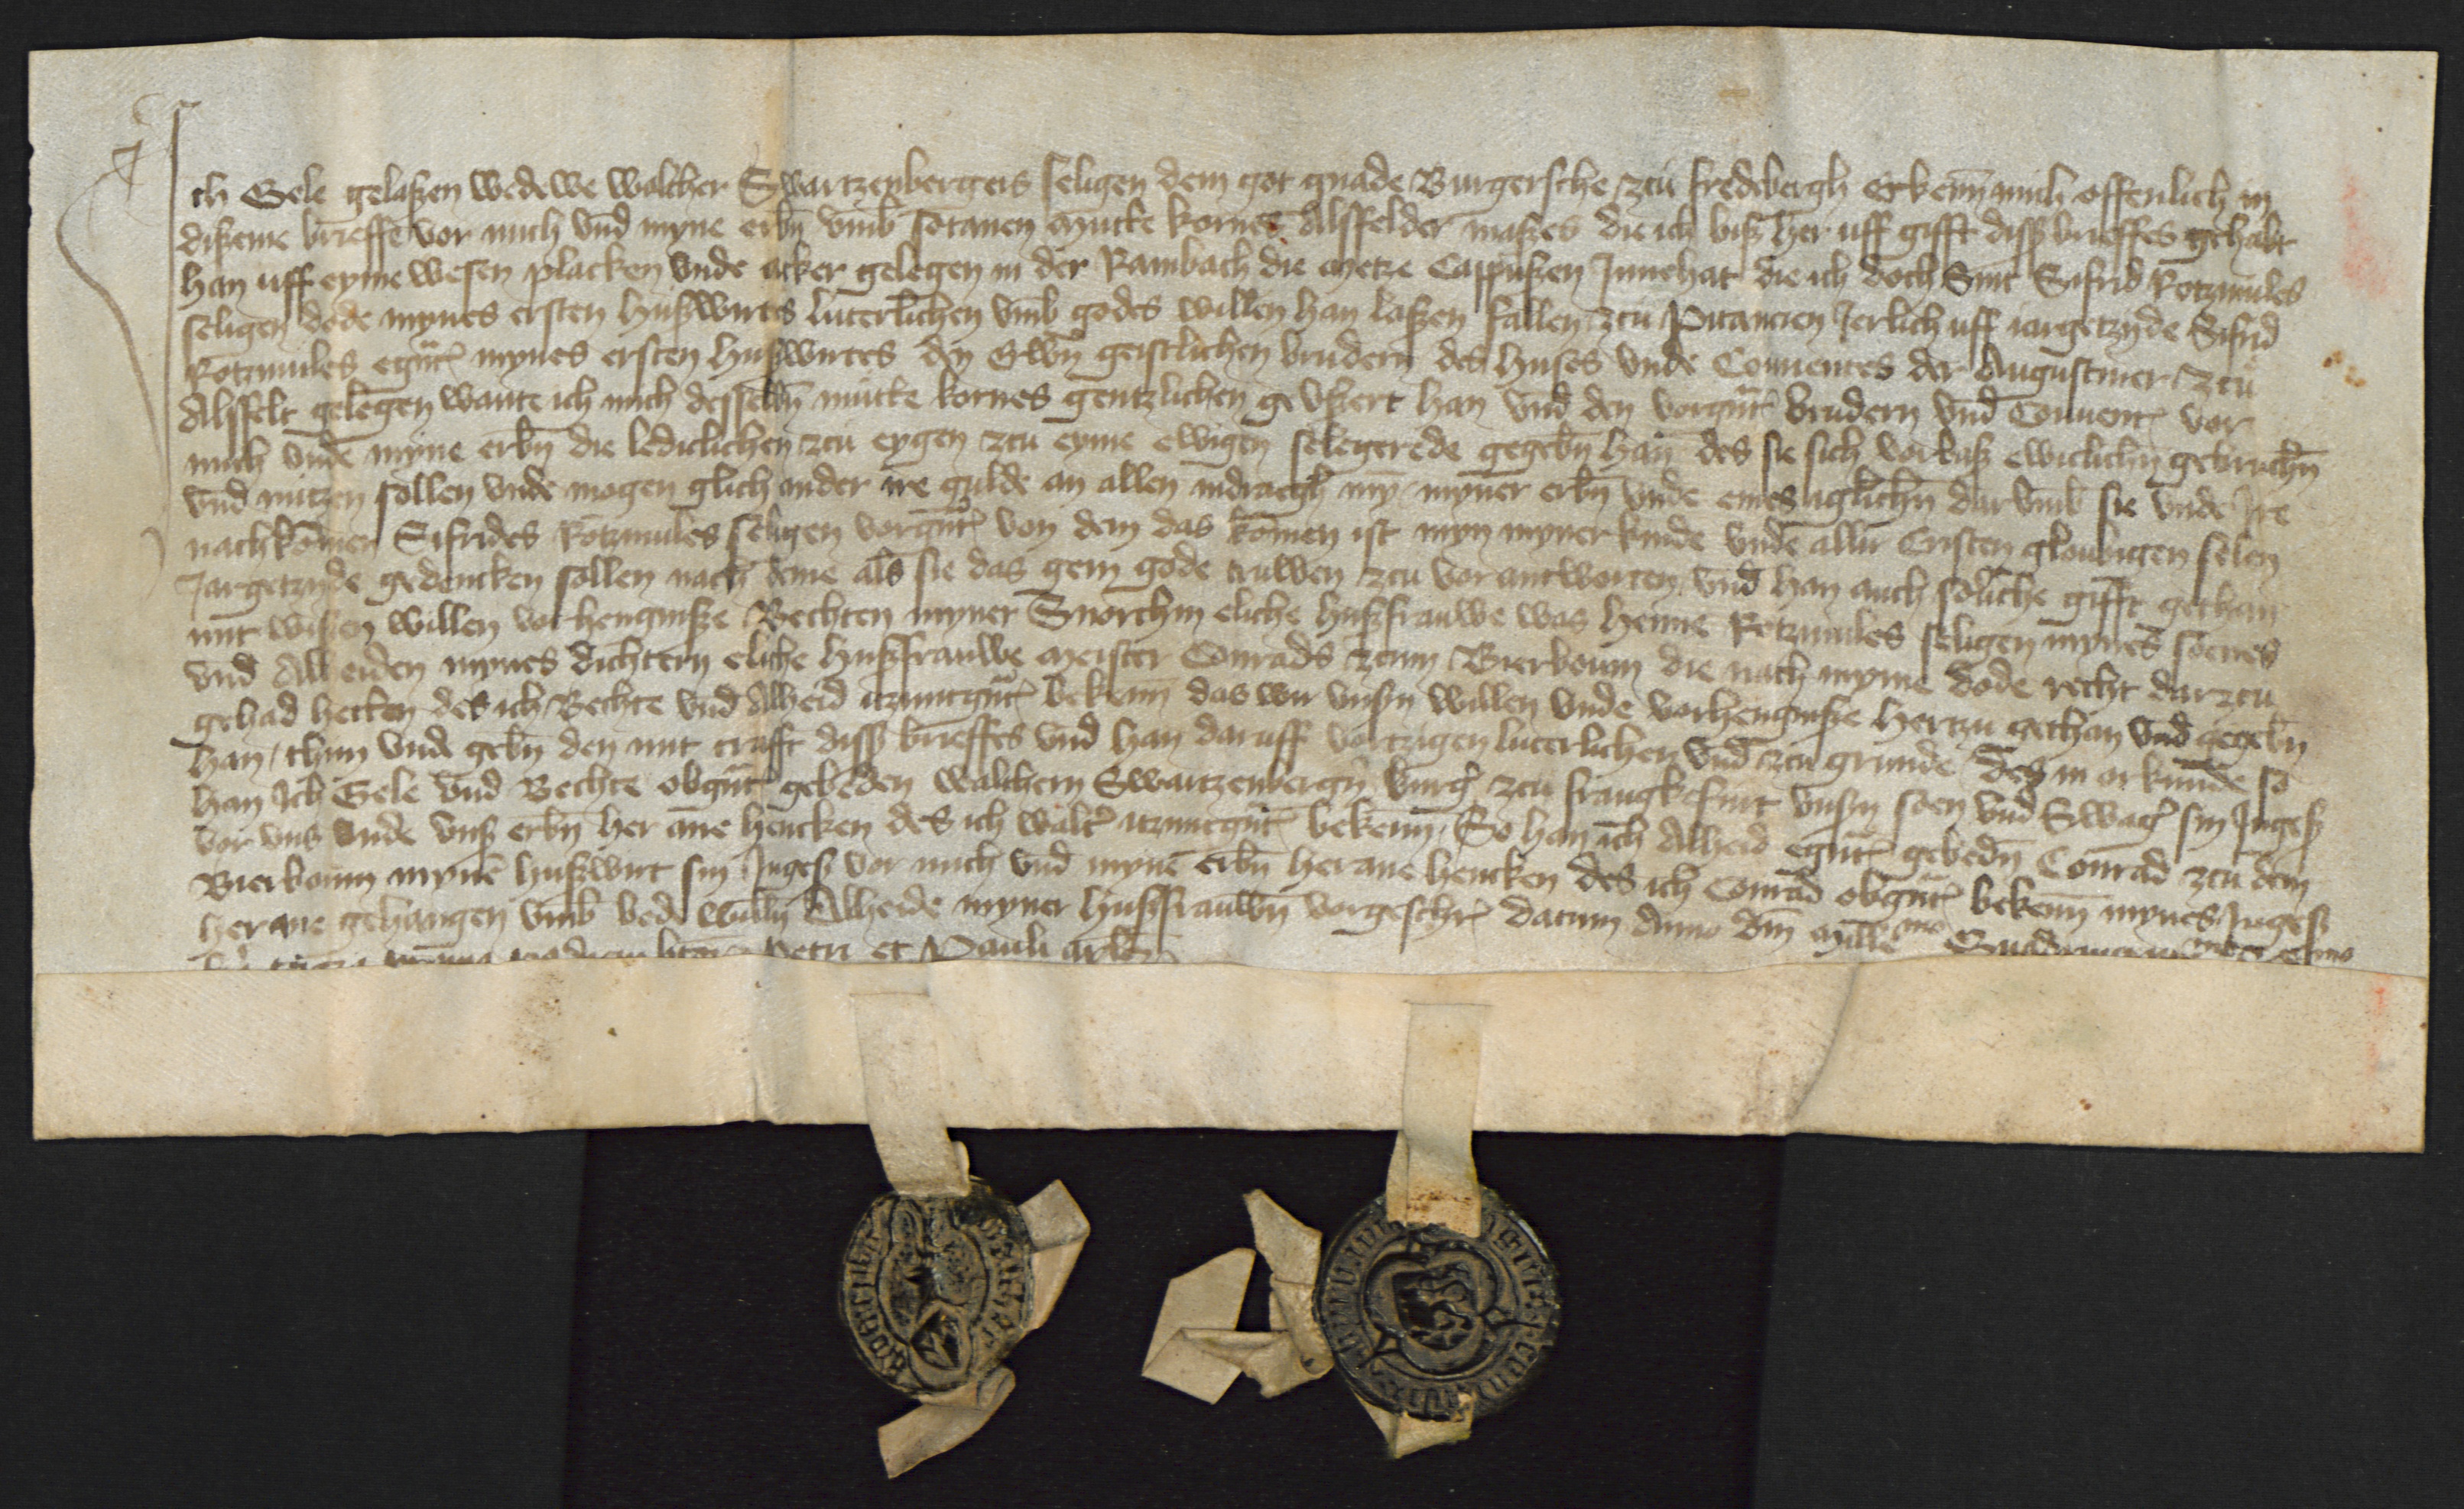 Ich Gele gelaßen wedewe walther Swartzenbergers seligen dem got gnade Burgersche zcu fredebergh Erkenn mich offenlich in
dißeme brieffe vor mich vnd myne erbn vmb sotanen mutte kornes Alsfelder maßes die ich biß her uff gifft diß brieffes gehabt
han uff eyme wesen placken vnde acker gelegen in der Rambach die Metze Cappußen Innehat die ich doch Sint Sifrid Rotzmules
seligen dode mynes ersten hußwirtes luterlichen vmb godes willen han laßen fallen zcu Pitancien Jerlich uff iargetzyde Sifrid
Rotzmules egnt mynes ersten hußwirtes den Erwn geistlichen brudern des huses vnde Conuentes der Augustiner zcu
Alsffelt gelegen wante ich mich desselbn mutte kornes gentzlichen gevßert han vnd den vorgnt brudern vnd Conuent vor
mich vnde myne erbn die lediclichen zcu eygen zcu eyme ewigen selegerede gegebn han des sie sich vorbaß ewiclichn gebruchn
vnd nutzen sollen vnde mogen glich ander ire gulde an allen indragh myn myner erbn vnde eines iglichn dar vmb sie vnde Ire
nachkomen Sifrides Rotzmules seligen vorgnt von dem das komen ist myn myner kinde vnde aller Cristen gloubigen selen
Jargetzyde gedencken sollen nach deme als sie das gein gode truwen zcu vorantworten vnd han auch soliche gifft gethan
mit wißen willen vorhengniße Bechten myner Snorchin eliche hußfrauwe was henne Rotzmules seligen mynes soenes
vnd Alheiden mynes dichtern eliche hußfrauwe meister Conrads zcum Bierboum die nach myme dode recht darzcu
gehad hetten des ich Bechte vnd Alheid itzuntgnt bekenn das wir vnsin willen vnde vorhengniße hertzu gethan vnd gegebn
han thun vnde gebn den mit crafft diß brieffes vnd han daruff vortzigen luterlichen vnd zcu grunde Des in orkunde so
han Ich Gele vnd Bechte obgnt gebeden walthern Swartzenbergn burg zcu frangkfurt vnsin soen vnd Swag sin Ingeß
vor vns vnde vnß erbn her ane hencken des ich walt itzuntgnt bekenn So han ich Alheid egnt gebedn Conrad zcu dem
Bierboum myne hußwirt sin Ingeß vor mich vnd myne erbn herane hencken des ich Conrad obgnt bekenn mynes Ingeß
herane gehangen vmb bede willn Alheide myner hußfrauwn vorgeschr datum Anno dm Mille mo Quadringentes
Petri et Pauli